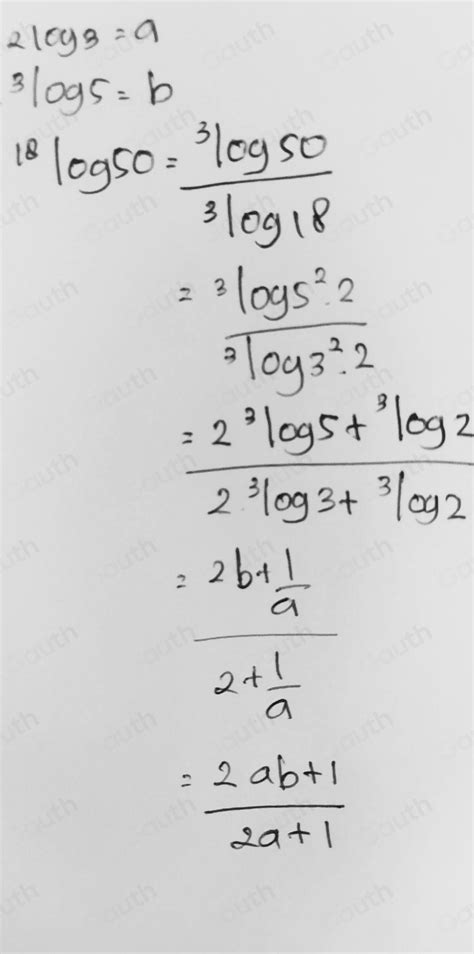 2log3 = a
³log5 = b
¹⁸log50 = ³log50
³log18
= ³log5².2
³log3².2
= 2 ³log5 + ³log2
2.³log3 + ³log2
= 2b + 1/a
2 + 1/a
= 2ab+1
2a+1